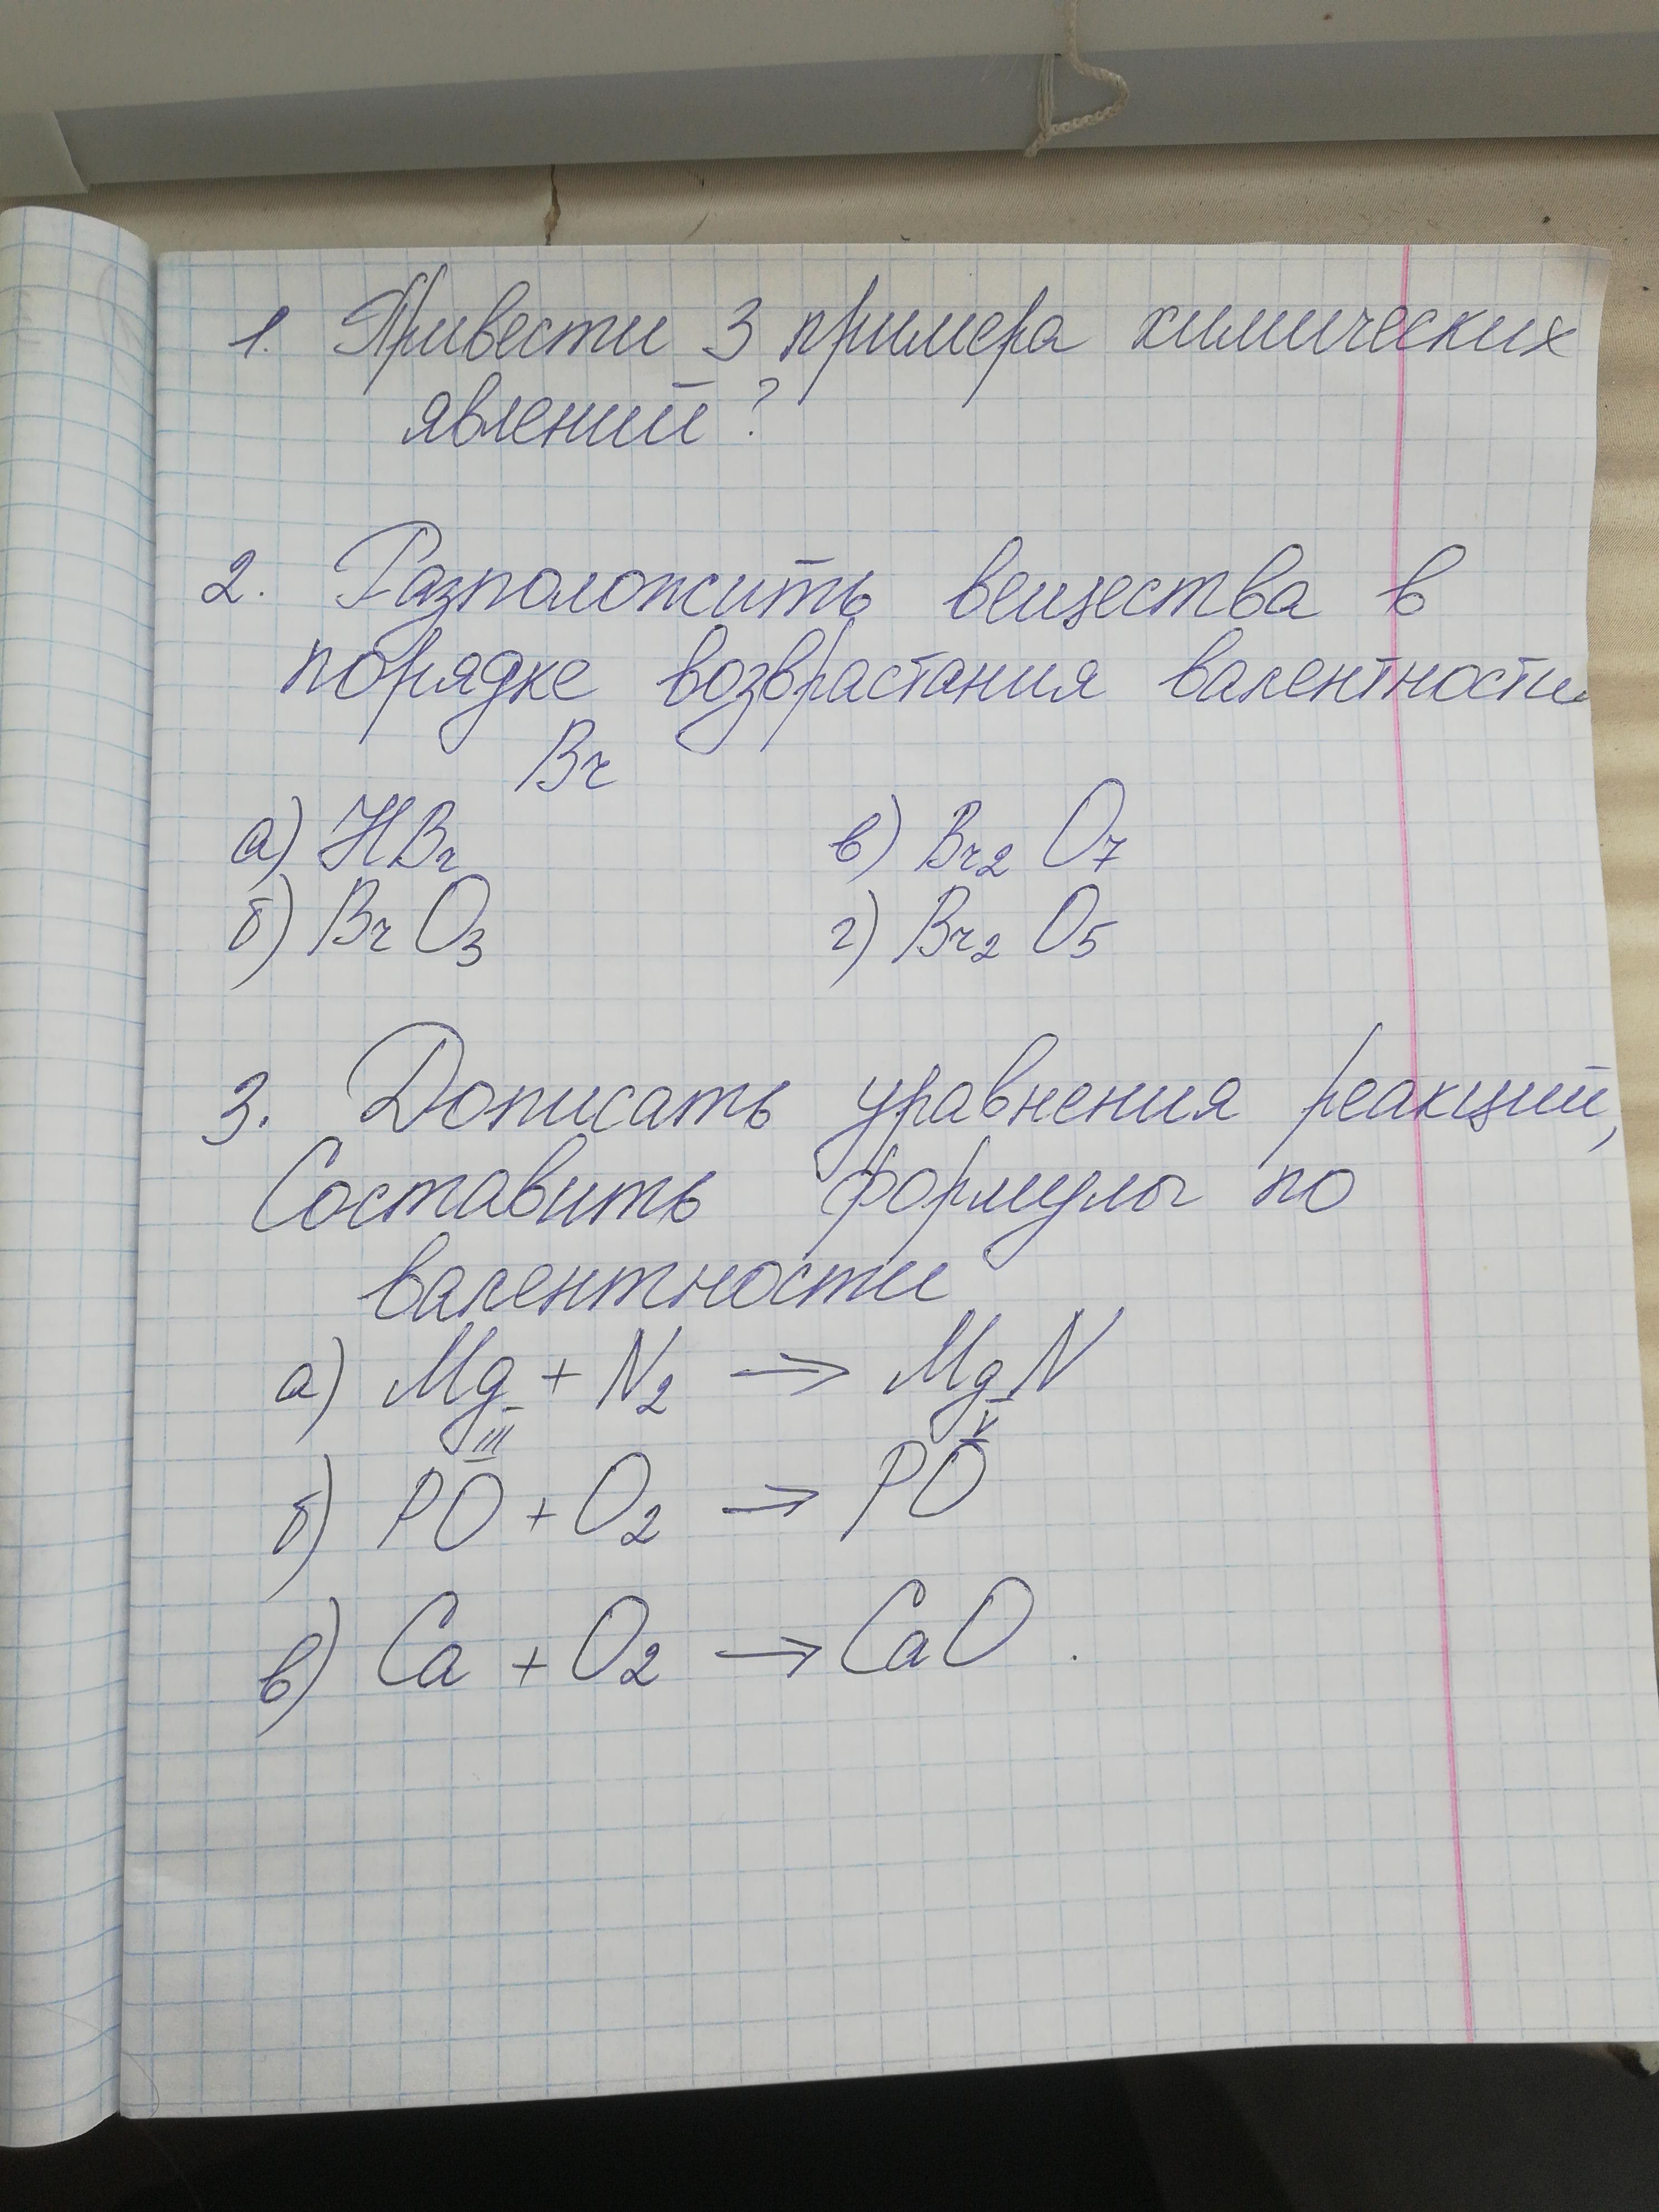 1. Привести 3 примера химических
явлений?
2. Разположить вещества в
порядке возврастания валентности
Br
а) HBr
в) Br2 O7
б) Br O3
г) Br2 O5
3. Дописать уравнения реакций,
Составить формулы по
валентности
а) Mg + N2 → MgN
III V
б) PO + O2 → PO
в) Ca + O2 → CaO.